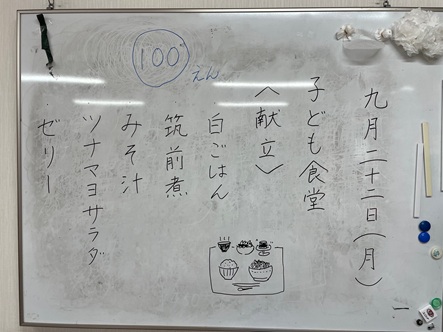 九月二十二日(月)
子ども食堂
〈献立〉
白ごはん
筑前煮
みそ汁
ツナマヨサラダ
ゼリー
100
えん